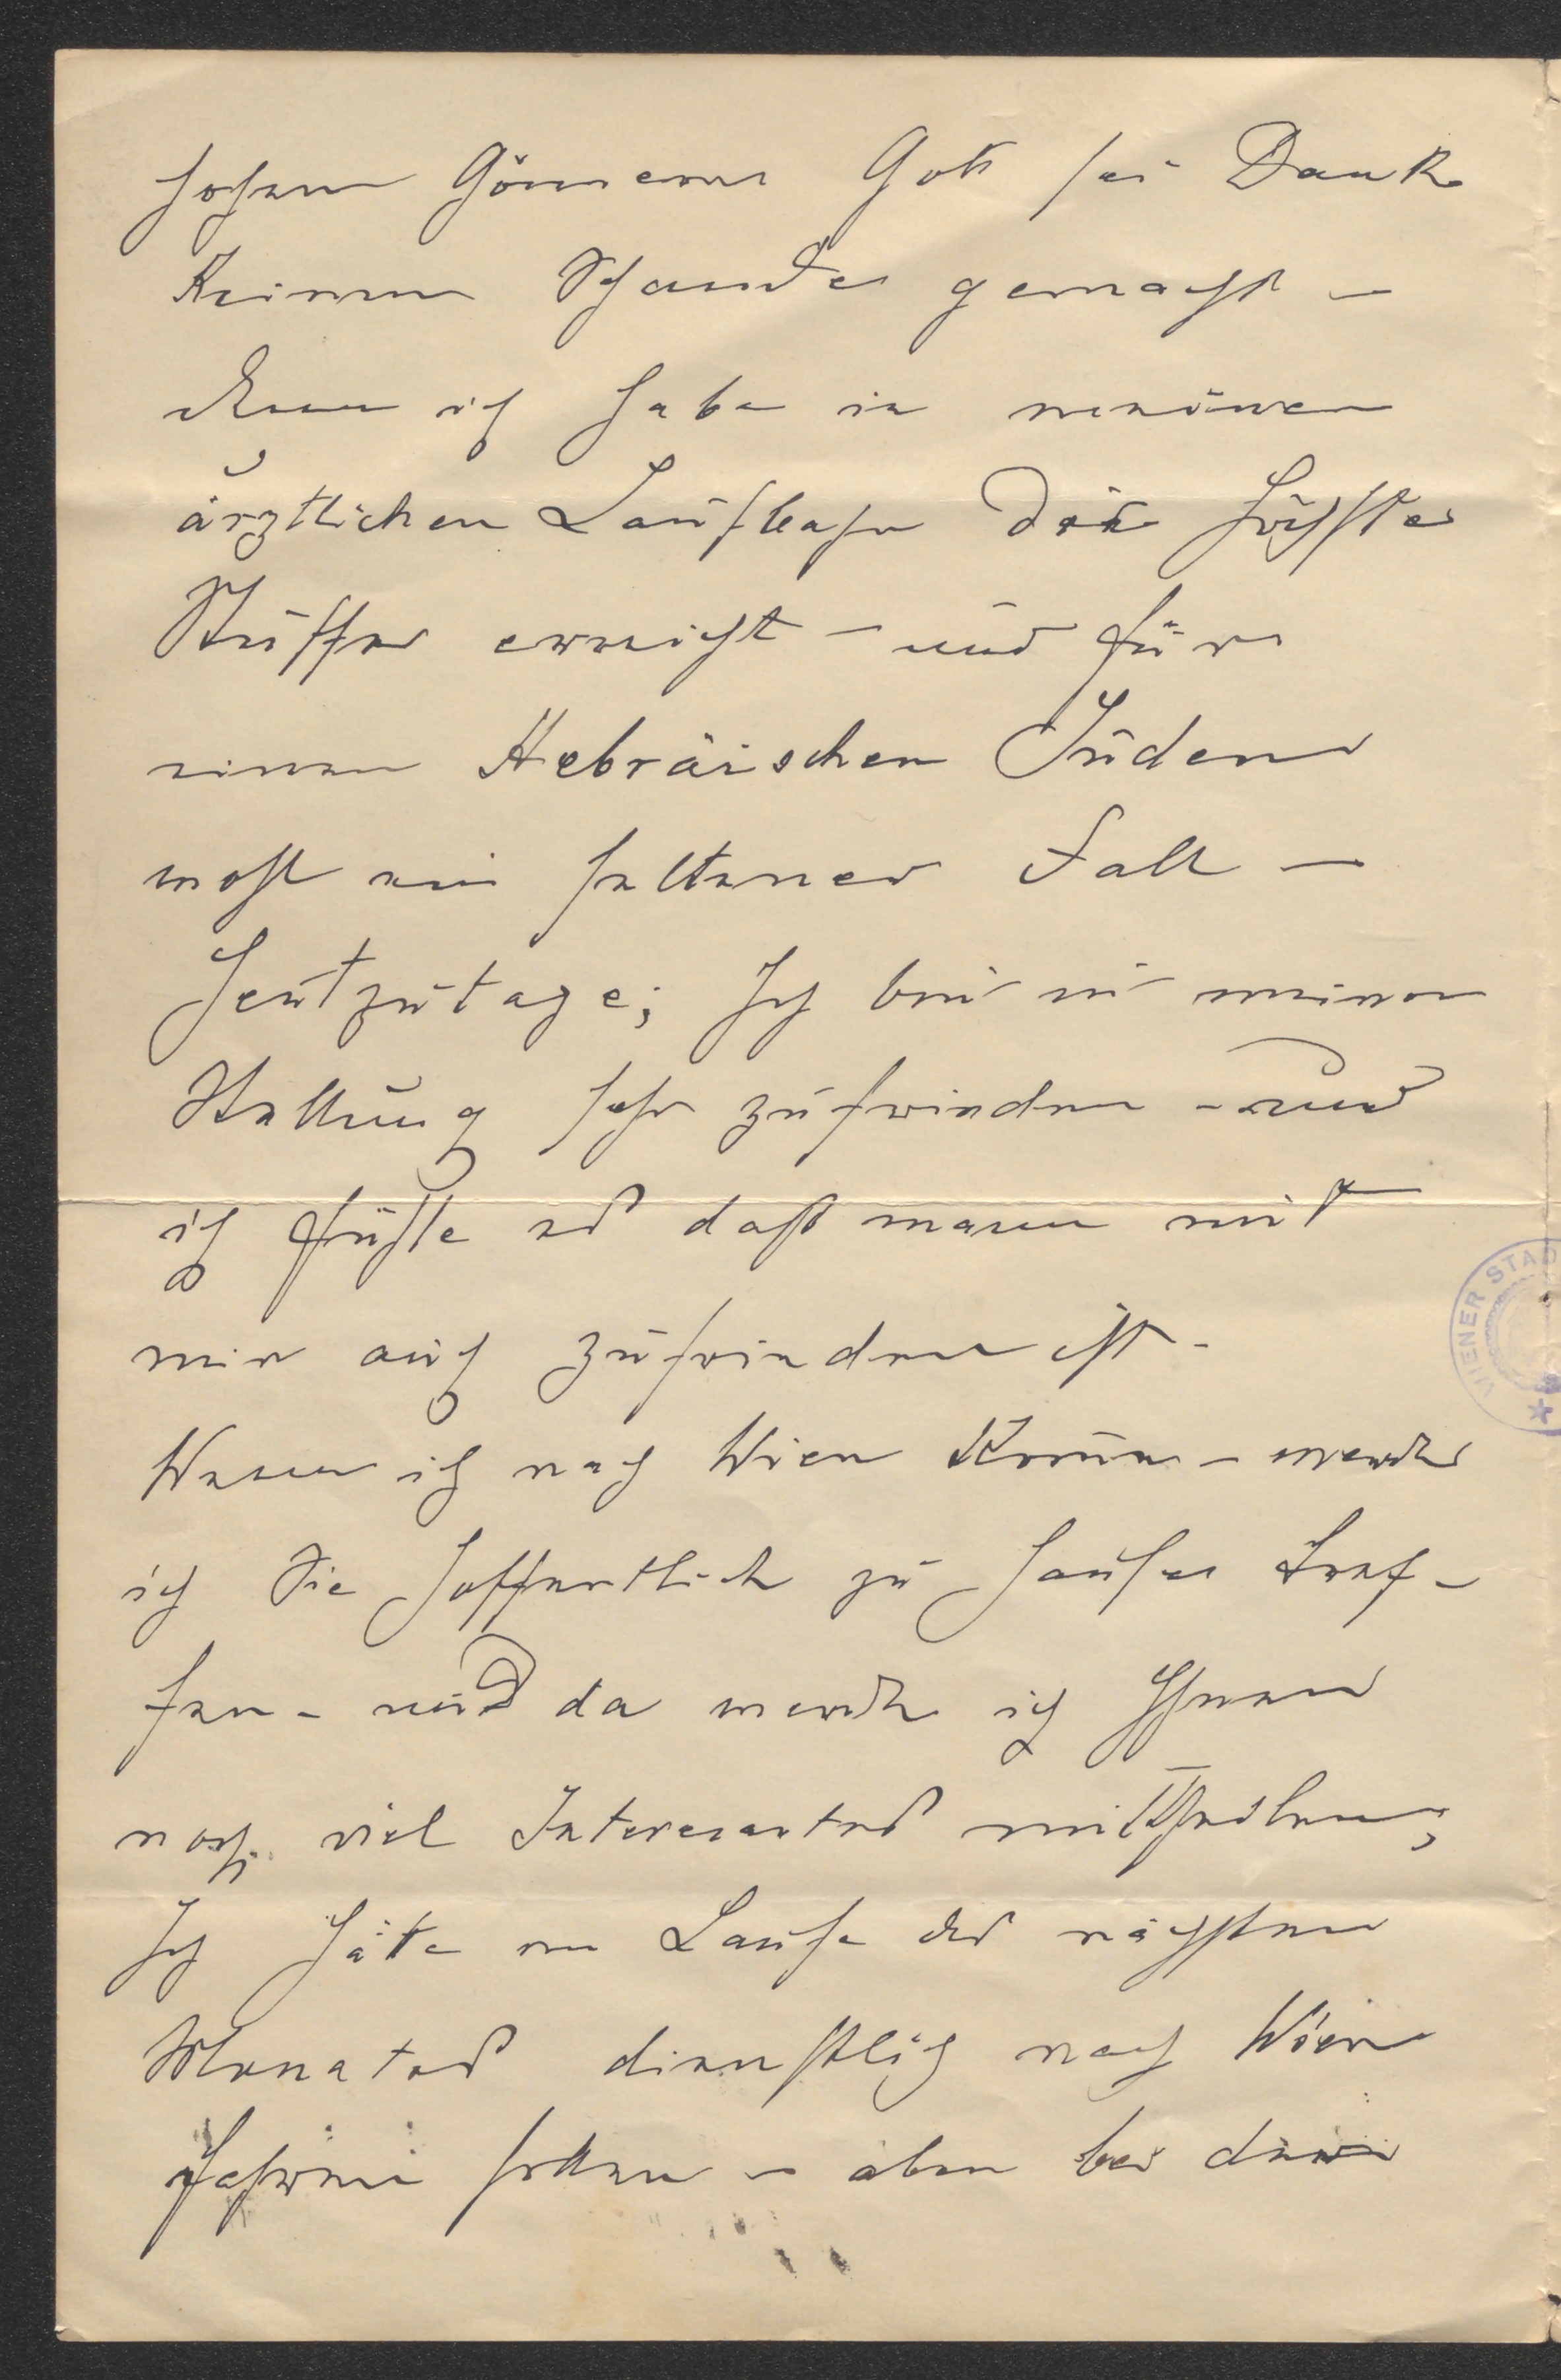 hohen Gönnern Gott sei Dank
Keinen Schande gemacht –
denn ich habe in meinen
ärztlichen Laufbahn die höchste
Stuffe erreicht – und für
einen Hebräischen Juden
wohl ein seltener Fall –
Heutzutage; Ich bin in meiner
Stellung sehr zufrieden – und
ich fühle es daß mann mit
mir auch zufrieden ist –
Wenn ich nach Wien Komme – werde
ich Sie hoffentlich zu Hause tref-
fen – und da werde ich Ihnen
noch viel Interesantes mittheilen;
Ich häte im Laufe des nächsten
Monates dienstlich nach Wien
fahren sollen – aber bei den
WIENER STAD